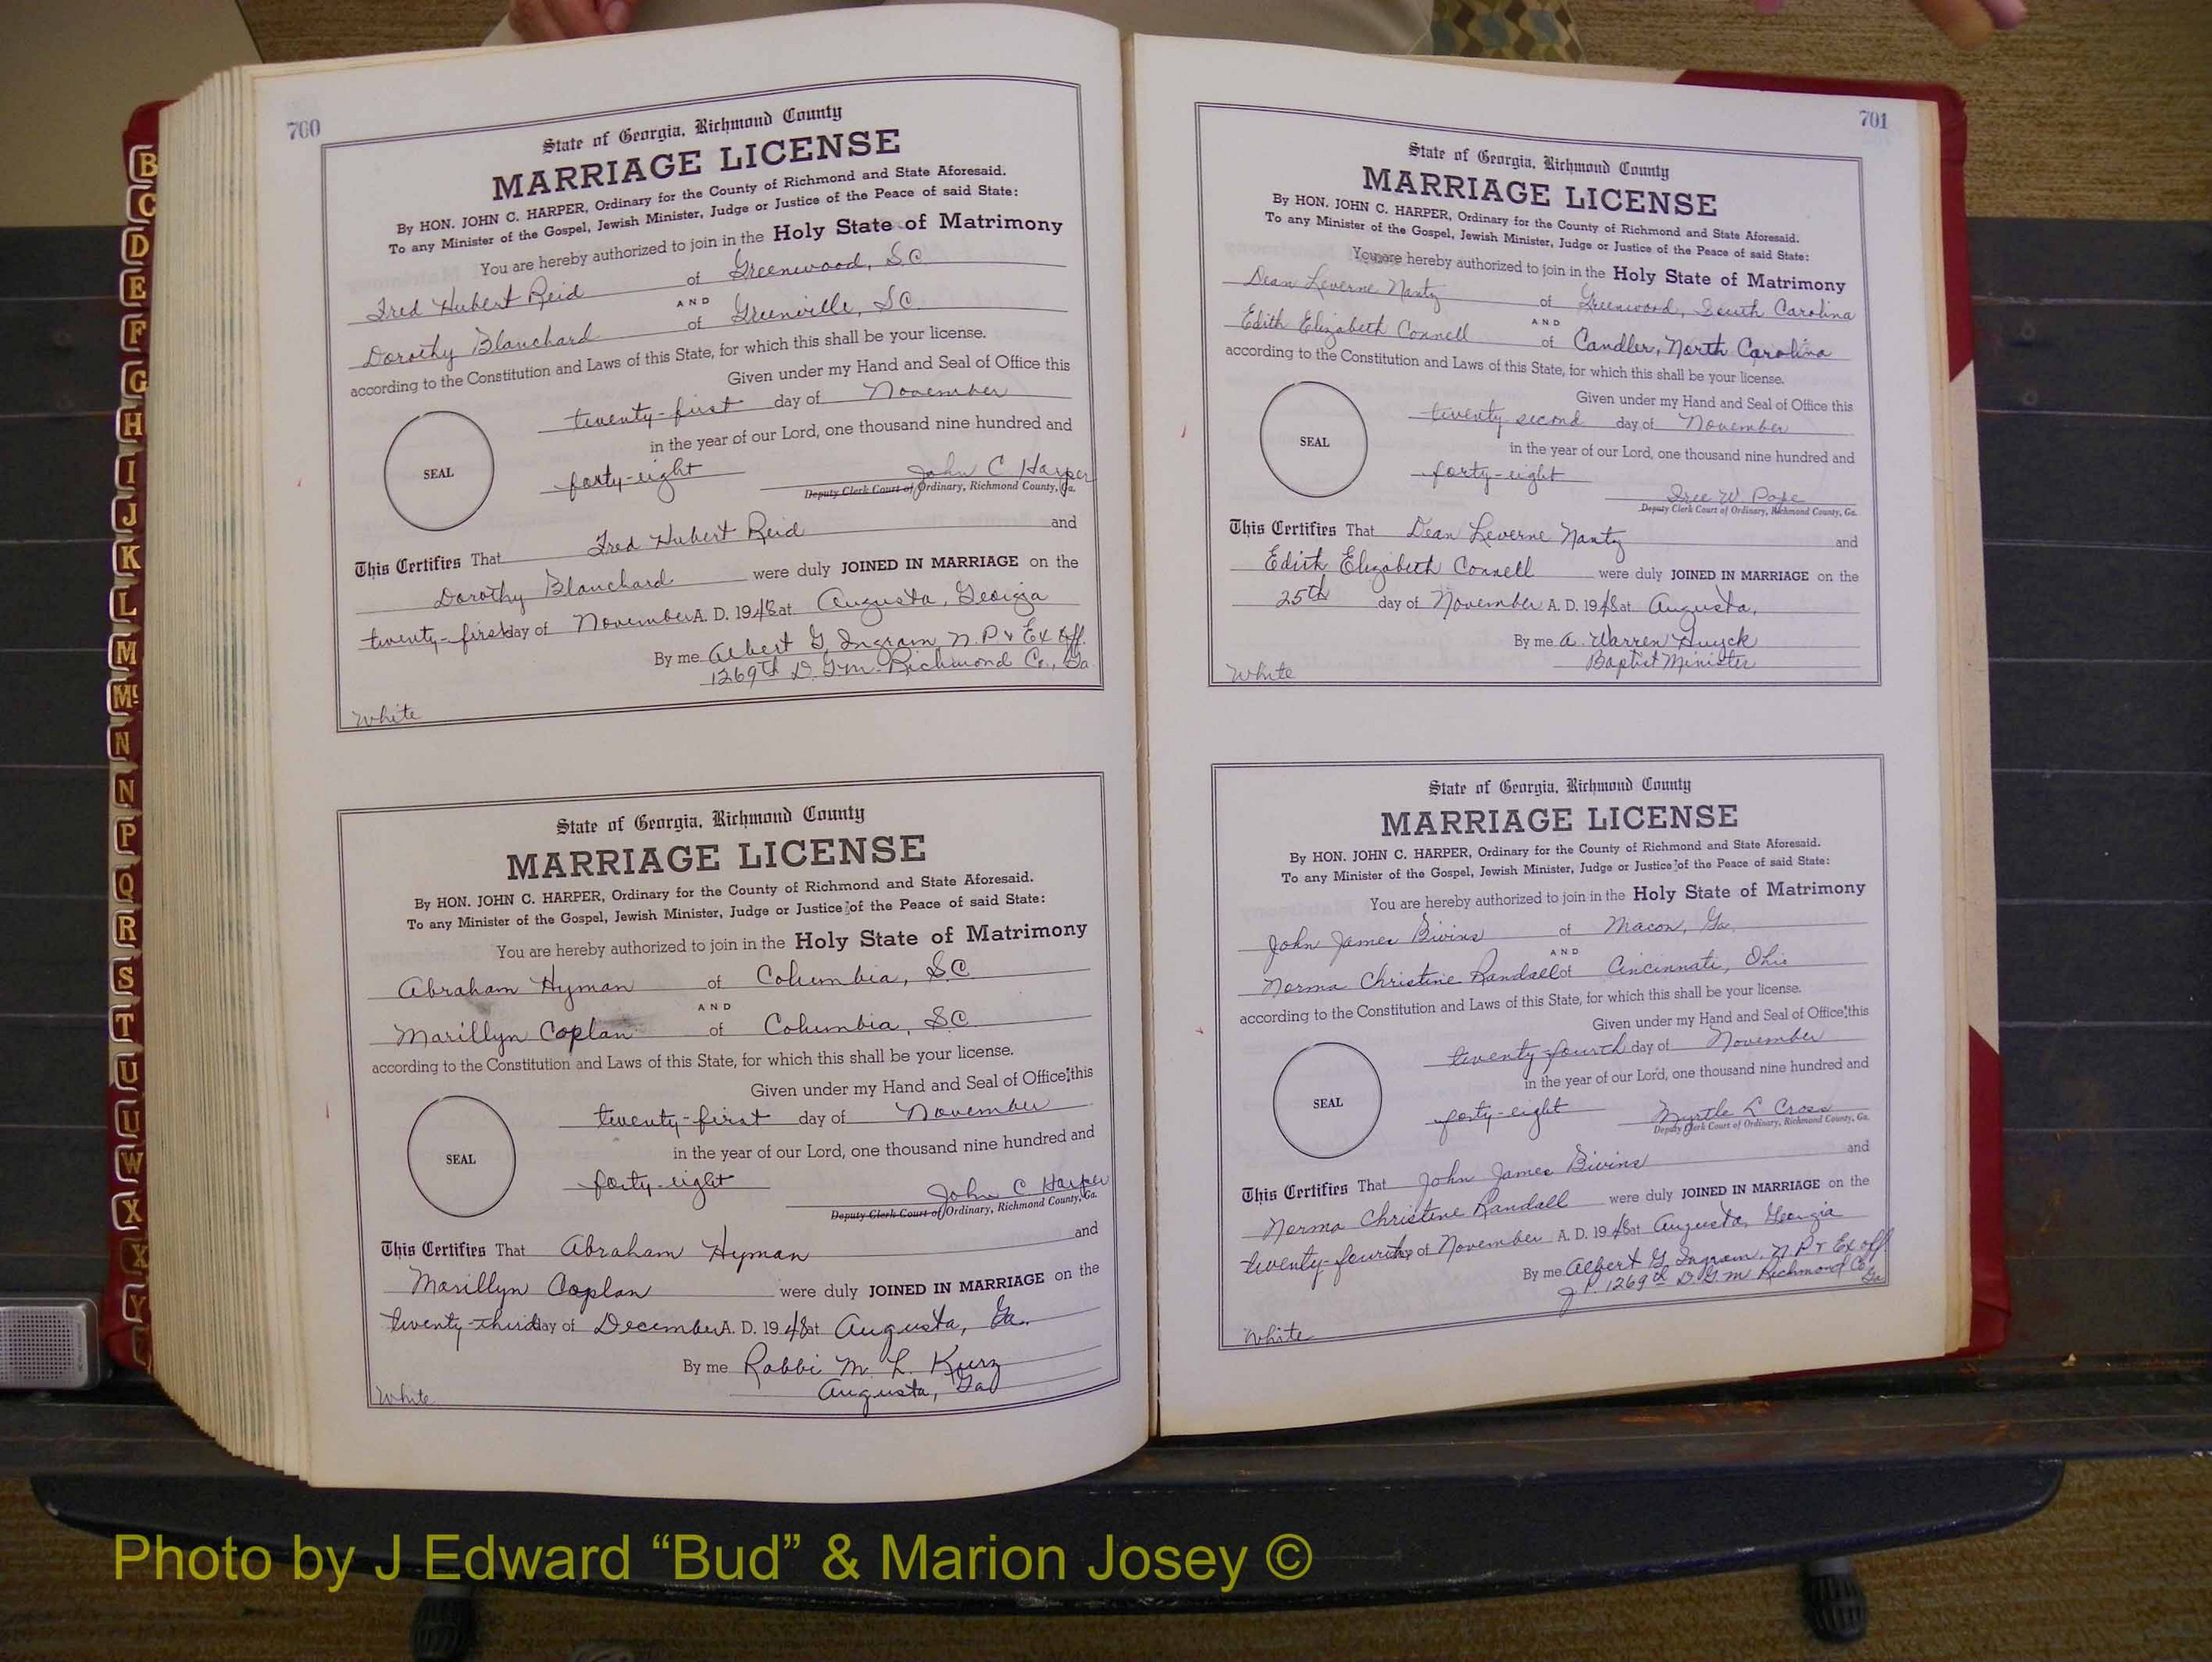 700
State of Georgia, Richmond County
MARRIAGE LICENSE
By HON. JOHN C. HARPER, Ordinary for the County of Richmond and State Aforesaid.
To any Minister of the Gospel, Jewish Minister, Judge or Justice of the Peace of said State:
You are hereby authorized to join in the Holy State of Matrimony
Fred Hubert Reid of Greenwood, S.C.
AND
Dorothy Blanchard of Greenville, S.C.
according to the Constitution and Laws of this State, for which this shall be your license.
Given under my Hand and Seal of Office this
twenty-first day of November
in the year of our Lord, one thousand nine hundred and
SEAL
forty-eight John C Harper
Deputy Clerk Court of Ordinary, Richmond County, Ga.
This Certifies That Fred Hubert Reid and
Dorothy Blanchard were duly JOINED IN MARRIAGE on the
twenty-first day of November A. D. 1948 at Augusta, Georgia
By me Albert G. Ingram N.P & Ex off.
1269th D. G.M. Richmond Co., Ga
White
State of Georgia, Richmond County
MARRIAGE LICENSE
By HON. JOHN C. HARPER, Ordinary for the County of Richmond and State Aforesaid.
To any Minister of the Gospel, Jewish Minister, Judge or Justice of the Peace of said State:
You are hereby authorized to join in the Holy State of Matrimony
Abraham Hyman of Columbia, S.C.
AND
Marillyn Coplan of Columbia, S.C.
according to the Constitution and Laws of this State, for which this shall be your license.
Given under my Hand and Seal of Office this
twenty-first day of November
in the year of our Lord, one thousand nine hundred and
SEAL
forty-eight John C. Harper
Deputy Clerk Court of Ordinary, Richmond County, Ga.
This Certifies That Abraham Hyman and
Marillyn Coplan were duly JOINED IN MARRIAGE on the
twenty-third day of December A. D. 1948 at Augusta, Ga.
By me Rabbi M. L. Kurz
Augusta, Ga
White
701
State of Georgia, Richmond County
MARRIAGE LICENSE
By HON. JOHN C. HARPER, Ordinary for the County of Richmond and State Aforesaid.
To any Minister of the Gospel, Jewish Minister, Judge or Justice of the Peace of said State:
You are hereby authorized to join in the Holy State of Matrimony
Dean Leverne Nantz of Greenwood, South Carolina
AND
Edith Elizabeth Connell of Candler, North Carolina
according to the Constitution and Laws of this State, for which this shall be your license.
Given under my Hand and Seal of Office this
twenty second day of November
in the year of our Lord, one thousand nine hundred and
SEAL
forty-eight W. Pope
Deputy Clerk Court of Ordinary, Richmond County, Ga.
This Certifies That Dean Leverne Nantz and
Edith Elizabeth Connell were duly JOINED IN MARRIAGE on the
25th day of November A. D. 1948 at Augusta,
By me A. Warren Huyck
Baptist Minister
White
State of Georgia, Richmond County
MARRIAGE LICENSE
By HON. JOHN C. HARPER, Ordinary for the County of Richmond and State Aforesaid.
To any Minister of the Gospel, Jewish Minister, Judge or Justice of the Peace of said State:
You are hereby authorized to join in the Holy State of Matrimony
John James Bivins of Macon, Ga.
AND
Norma Christine Randall of Cincinnati, Ohio
according to the Constitution and Laws of this State, for which this shall be your license.
Given under my Hand and Seal of Office this
twenty-fourth day of November
in the year of our Lord, one thousand nine hundred and
SEAL
forty-eight Myrtle L Cross
Deputy Clerk Court of Ordinary, Richmond County, Ga.
This Certifies That John James Bivins and
Norma Christine Randall were duly JOINED IN MARRIAGE on the
twenty-fourth day of November A. D. 1948 at Augusta, Georgia
By me Albert G. Ingram, N P & Ex off
J P. 1269th D. G M Richmond Co, Ga
White
B
C
D
E
F
G
H
I
J
K
L
M
Mc
N
N
P
Q
R
S
T
U
U
W
X
X
Y
Photo by J Edward “Bud” & Marion Josey ©